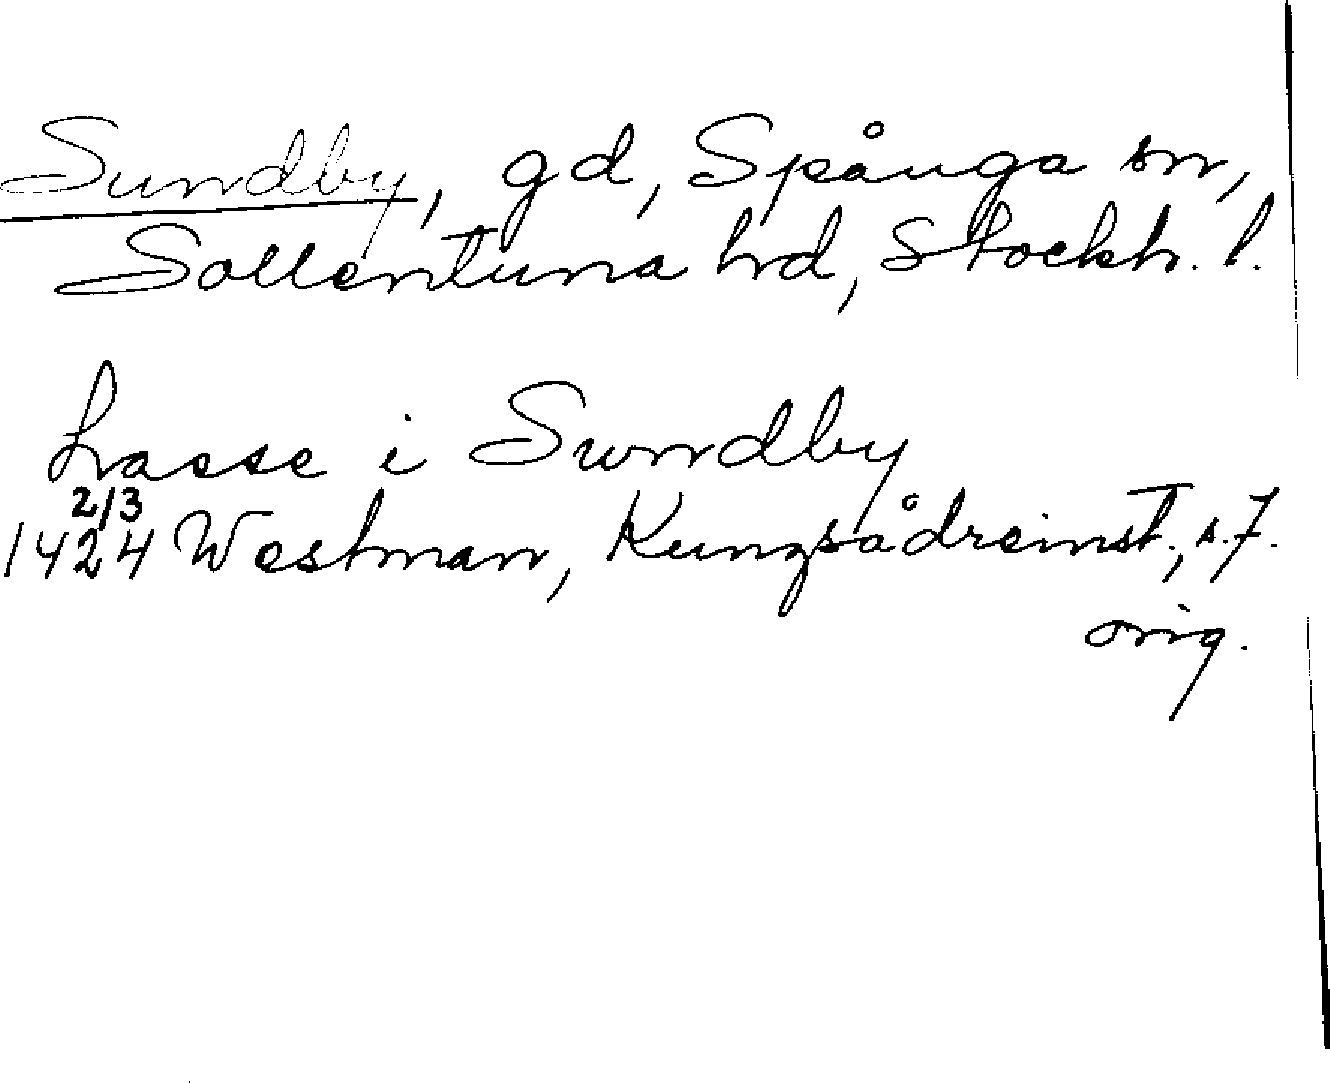 Sundby, gd, Spånga sn,
Sollentuna hd, Stockh. l.
Lasse i Sundby
2/3
1424 Westman, Kungsådreinst., s. 7.
orig.